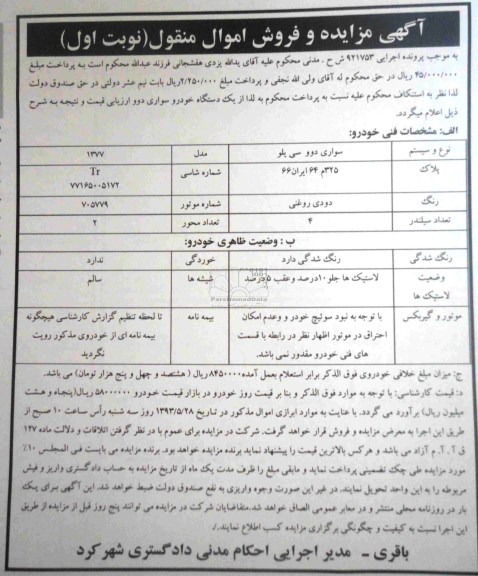 آگهی مزایده و فروش اموال منقول(نوبت اول)
به موجب پرونده اجرایی ۹۲۱۷۵۳ ش ح . مدنی محکوم علیه آقای یدالله یزدی هفشجانی فرزند عبدالله محکوم است به پرداخت مبلغ
۴۵/۰۰۰/۰۰۰ ریال در حق محکوم له آقای ولی الله نجفی و پرداخت مبلغ ۲/۲۵۰/۰۰۰ریال بابت نیم عشر دولتی در حق صندوق دولت
لذا نظر به استنکاف محکوم علیه نسبت به پرداخت محکوم به لذا از یک دستگاه خودرو سواری دوو ارزیابی قیمت و نتیجه به شرح
ذیل اعلام میگردد.
الف: مشخصات فنی خودرو:
نوع و سیستم سواری دوو سی یلو مدل ۱۳۷۷
پلاک ۳۲۵م۶۴ ایران۶۶ شماره شاسی Tr
۷۷۱۶۵۰۰۵۱۷۲
رنگ دودی روغنی شماره موتور ۷۰۵۷۷۹
تعداد سیلندر ۴ تعداد محور ۲
ب : وضعیت ظاهری خودرو:
رنگ شدگی رنگ شدگی دارد خوردگی ندارد
وضعیت لاستیک ها جلو۱۰درصد وعقب ۵درصد شیشه ها سالم
لاستیک ها
موتور و گیربکس با توجه به نبود سوئیچ خودر و وعدم امکان بیمه نامه تا لحظه تنظیم گزارش کارشناسی هیچگونه
احتراق در موتور اظهار نظر در رابطه با قسمت بیمه نامه ای از خودروی مذکور رویت
های فنی خودرو مقدور نمی باشد. نگردید
ج: میزان مبلغ خلافی خودروی فوق الذکر برابر استعلام بعمل آمده ۸۴۵۰۰۰۰ریال ( هشتصد و چهل و پنج هزار تومان) می باشد.
د: قیمت کارشناسی: با توجه به موارد فوق الذکر و بنا بر قیمت روز خودرو در بازار قیمت خودرو ۵۸۰۰۰۰۰۰ ریال(پنجاه و هشت
میلیون ریال) برآورد می گردد. با عنایت به موارد ابرازی اموال مذکور در تاریخ ۱۳۹۳/۵/۲۸ روز سه شنبه رأس ساعت ۱۰ صبح از
طریق این اجرا به معرض مزایده و فروش قرار خواهد گرفت. شرکت در مزایده برای عموم با در نظر گرفتن اتلاقات و دلالت ماده ۱۲۷
ق . آ . م آزاد می باشد و هرکس بالاترین قیمت را پیشنهاد نماید برنده مزایده خواهد بود. برنده مزایده می بایست فی المجلس ۱۰٪
مورد مزایده طی چک تضمینی پرداخت نماید و مابقی مبلغ را ظرف مدت یک ماه از تاریخ مزایده به حساب دادگستری واریز و فیش
مربوطه را به این واحد تحویل نمایند. در غیر این صورت وجوه واریزی به نفع صندوق دولت ضبط خواهد شد. این آگهی برای یک
بار در روزنامه محلی منتشر و در معابر عمومی الصاق خواهد شد.متقاضایان شرکت در مزایده می توانند پنج روز قبل از مزایده از طریق
این اجرا نسبت به کیفیت و چگونگی برگزاری مزایده کسب اطلاع نمایند./.
باقری – مدیر اجرایی احکام مدنی دادگستری شهرکرد
ParsNamadData